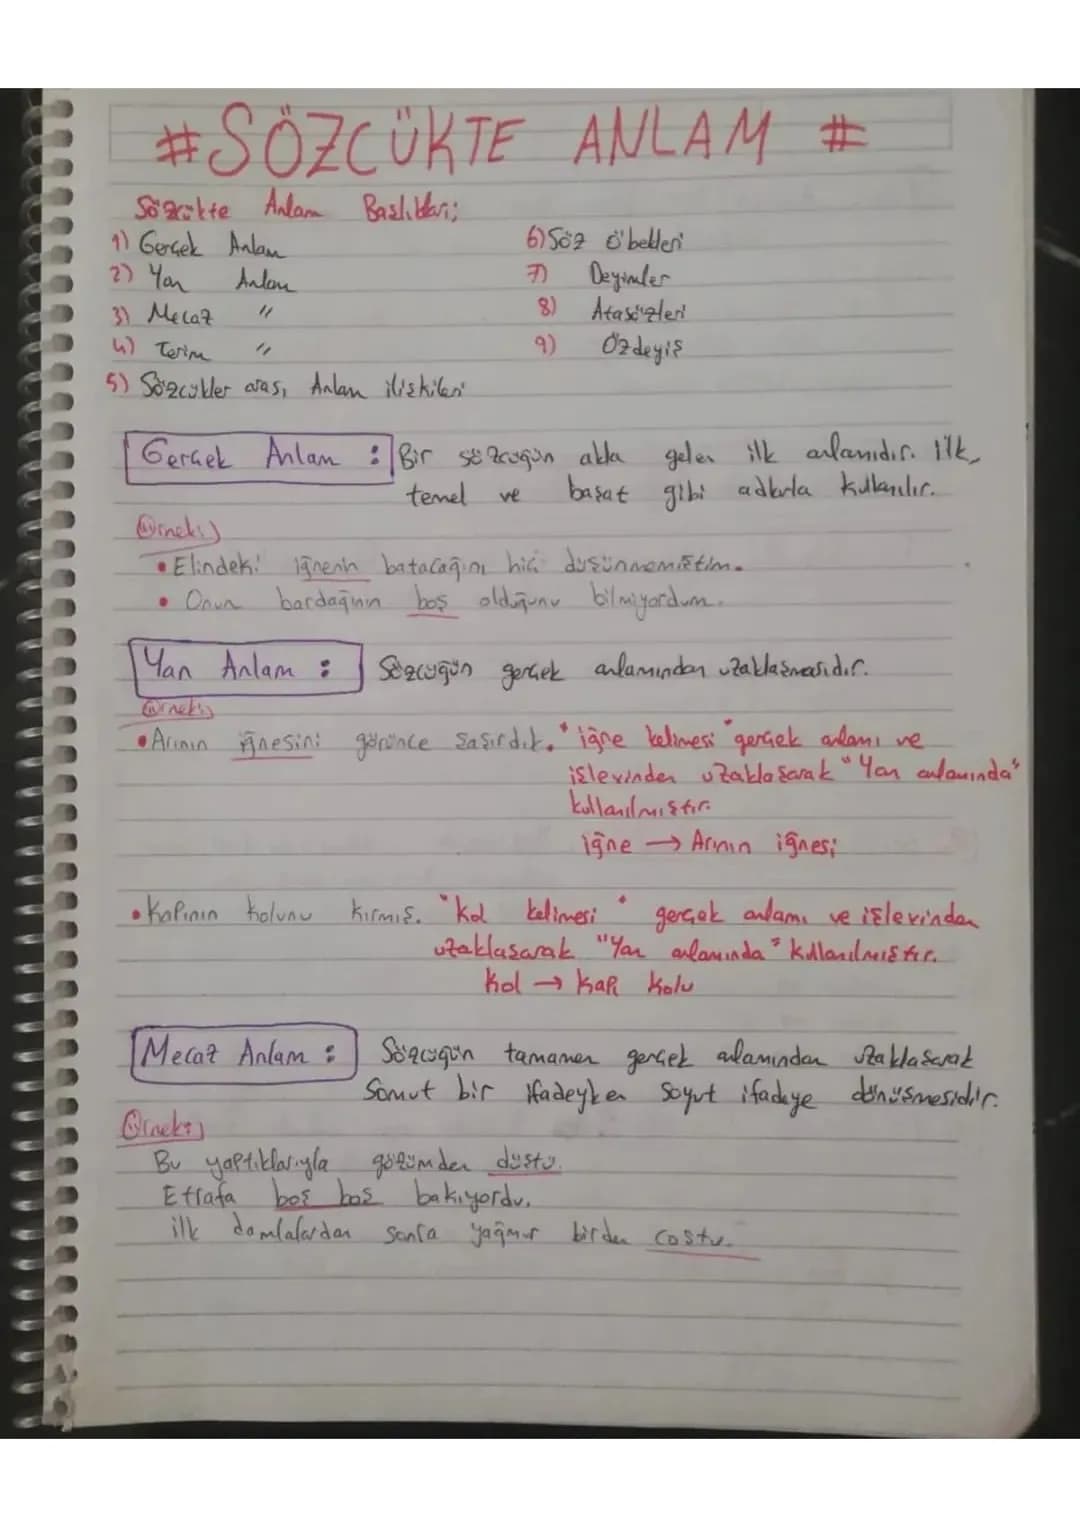 #SÖZCÜKTE ANLAM #
Sözcükte Anlam Başlıkları;
1) Gerçek Anlam
2) Yan Anlam
3) Mecaz "
4) Terim "
5) Sözcükler arası Anlam ilişkileri
6) Söz Öbekleri
7) Deyimler
8) Atasözleri
9) Özdeyiş
Gerçek Anlam : Bir sözcüğün akla gelen ilk anlamıdır. ilk,
temel ve başat gibi adlarla kullanılır.
Örnek;
• Elindeki iğnenin batacağını hiç düşünmemiştim.
• Onun bardağının boş olduğunu bilmiyordum.
Yan Anlam : Sözcüğün gerçek anlamından uzaklaşmasıdır.
Örnek;
• Arının iğnesini görünce şaşırdık. "iğne kelimesi" gerçek anlamı ve
işlevinden uzaklaşarak "Yan anlamında"
kullanılmıştır.
iğne → Arının iğnesi
• Kapının kolunu kırmış. "Kol kelimesi" gerçek anlamı ve işlevinden
uzaklaşarak "Yan anlamında" kullanılmıştır.
Kol → Kapı Kolu
Mecaz Anlam : Sözcüğün tamamen gerçek anlamından uzaklaşarak
Somut bir ifadeyken Soyut ifadeye dönüşmesidir.
Örnek;
Bu yaptıklarıyla gözümden düştü.
Etrafa boş boş bakıyordu.
ilk damlalardan sonra yağmur birden coştu.